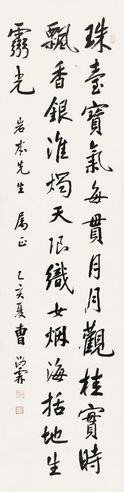 珠臺寶氣每貫月月觀桂實時
飄香銀淮燭天限織女烟海括地生
光
岩本先生 属正 乙亥夏 曹汝霖